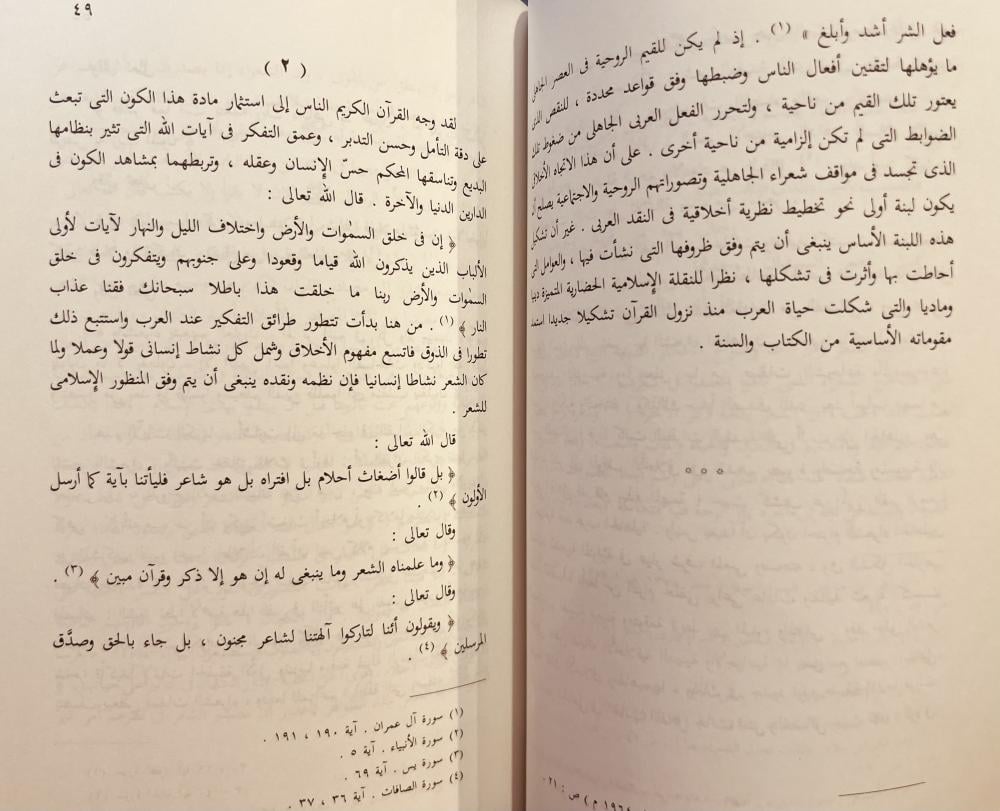 فعل الشر أشد وأبلغ » (١) . إذ لم يكن للقيم الروحية فى العصر الجاهلى
ما يؤهلها لتقنين أفعال الناس وضبطها وفق قواعد محددة ، للنقص الذى
يعتور تلك القيم من ناحية ، ولتحرر الفعل العربى الجاهلى من ضغوط تلك
الضوابط التى لم تكن إلزامية من ناحية أخرى . على أن هذا الاتجاه الأخلاقى
الذى تجسد فى مواقف شعراء الجاهلية وتصوراتهم الروحية والاجتماعية يصلح أن
يكون لبنة أولى نحو تخطيط نظرية أخلاقية فى النقد العربى . غير أن تشكيل
هذه اللبنة الأساس ينبغى أن يتم وفق ظروفها التى نشأت فيها ، والعوامل التى
أحاطت بها وأثرت فى تشكلها ، نظرا للنقلة الإسلامية الحضارية المتميزة دينيا
وماديا والتى شكلت حياة العرب منذ نزول القرآن تشكيلا جديدا استمد
مقوماته الأساسية من الكتاب والسنة .
١٩٦٤ م ) ص : ٢١ .
٤٩
( ٢ )
لقد وجه القرآن الكريم الناس إلى استثار مادة هذا الكون التى تبعث
على دقة التأمل وحسن التدبر ، وعمق التفكر فى آيات الله التى تثير بنظامها
البديع وتناسقها المحكم حسّ الإنسان وعقله ، وتربطهما بمشاهد الكون فى
الدارين الدنيا والآخرة . قال الله تعالى :
﴿ إن فى خلق السمٰوات والأرض واختلاف الليل والنهار لآيات لأولى
الألباب الذين يذكرون الله قياما وقعودا وعلى جنوبهم ويتفكرون فى خلق
السمٰوات والأرض ربنا ما خلقت هذا باطلا سبحانك فقنا عذاب
النار ﴾ (١) . من هنا بدأت تتطور طرائق التفكير عند العرب واستتبع ذلك
تطورا فى الذوق فاتسع مفهوم الأخلاق وشمل كل نشاط إنسانى قولا وعملا ولما
كان الشعر نشاطا إنسانيا فإن نظمه ونقده ينبغى أن يتم وفق المنظور الإسلامى
للشعر .
قال الله تعالى :
﴿ بل قالوا أضغاث أحلام بل افتراه بل هو شاعر فليأتنا بآية كما أرسل
الأولون ﴾ (٢) .
وقال تعالى :
﴿ وما علمناه الشعر وما ينبغى له إن هو إلا ذكر وقرآن مبين ﴾ (٣) .
وقال تعالى :
﴿ ويقولون أئنا لتاركوا آلهتنا لشاعر مجنون ، بل جاء بالحق وصدَّق
المرسلين ﴾ (٤) .
(١) سورة آل عمران . آية ١٩٠ ، ١٩١ .
(٢) سورة الأنبياء . آية ٥ .
(٣) سورة يس . آية ٦٩ .
(٤) سورة الصافات . آية ٣٦ ، ٣٧ .